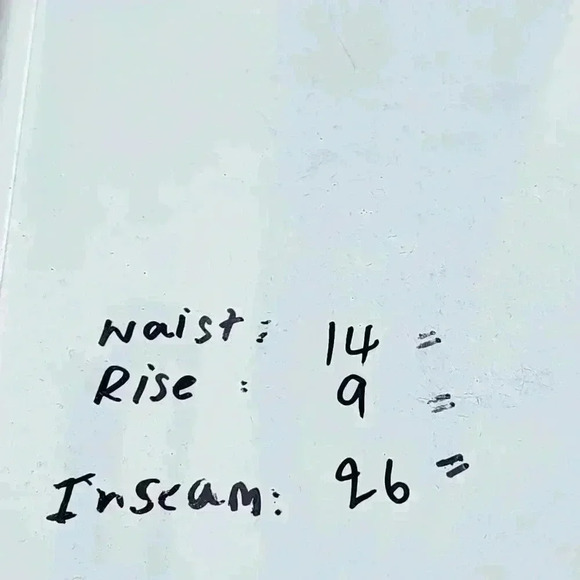 waist: 14 =
Rise : 9 =
Inseam: 26 =